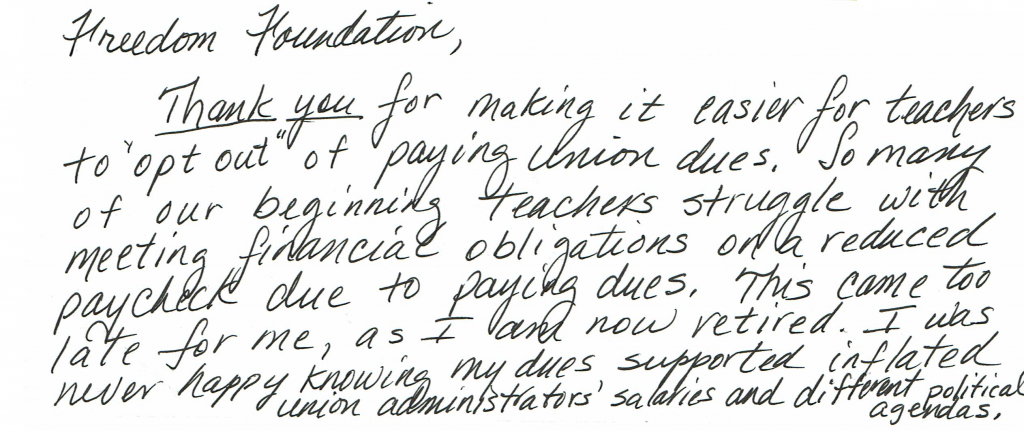 Freedom Foundation,
Thank you for making it easier for teachers
to "opt out" of paying union dues. So many
of our beginning teachers struggle with
meeting financial obligations on a reduced
paycheck due to paying dues. This came too
late for me, as I am now retired. I was
never happy knowing my dues supported inflated
union administrators' salaries and different political
agendas.